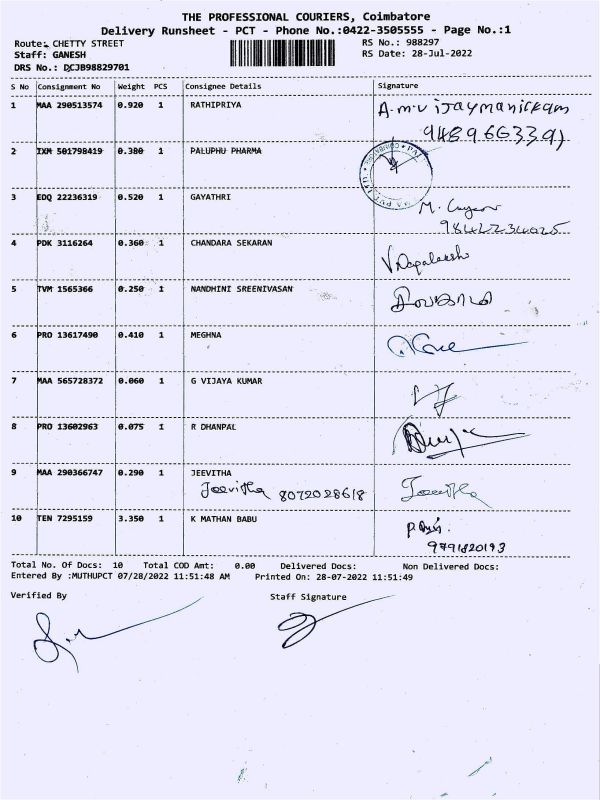 THE PROFESSIONAL COURIERS, Coimbatore
Delivery Runsheet - PCT - Phone No.:0422-3505555 - Page No.:1
Route: CHETTY STREET RS No.: 988297
Staff: GANESH RS Date: 28-Jul-2022
DRS No.: DCJB98829701
S No Consignment No Weight PCS Consignee Details Signature
1 MAA 290513574 0.920 1 RATHIPRIYA A.m.vijaymanickam
9489663391
2 IXM 501798419 0.380 1 PALUPHU PHARMA
3 EDQ 22236319 0.520 1 GAYATHRI M.
9842234025
4 PDK 3116264 0.360 1 CHANDARA SEKARAN
5 TVM 1565366 0.250 1 NANDHINI SREENIVASAN
6 PRO 13617490 0.410 1 MEGHNA
7 MAA 565728372 0.060 1 G VIJAYA KUMAR
8 PRO 13602963 0.075 1 R DHANPAL
9 MAA 290366747 0.290 1 JEEVITHA
Jeevitha 8072028618 Jeevitha
10 TEN 7295159 3.350 1 K MATHAN BABU
9791820193
Total No. Of Docs: 10 Total COD Amt: 0.00 Delivered Docs: Non Delivered Docs:
Entered By :MUTHUPCT 07/28/2022 11:51:48 AM Printed On: 28-07-2022 11:51:49
Verified By Staff Signature